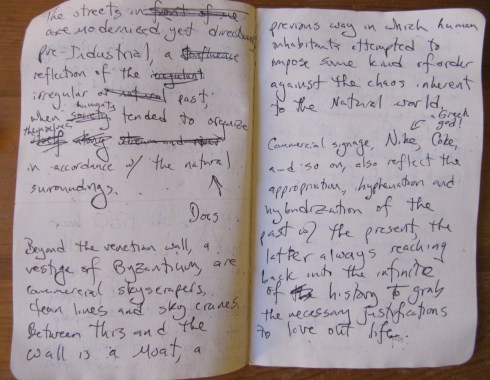 The streets in front of me
are modernized yet directly
pre-Industrial, a
reflection of the irregular
irregular or natural past,
humans
when society tended to organize
themselves
itself along stream and river
in accordance w/ the natural
surroundings.
Does
Beyond the venetian wall, a
vestige of Byzantium, are
commercial skyscrapers,
clean lines and sky cranes.
Between this and the
wall is a Moat, a
previous way in which human
inhabitants attempted to
impose some kind of order
against the chaos inherent
to the Natural world.
a Greek
god!
Commercial signage, Nike, Coke,
and so on, also reflect the
appropriation, hyphenation and
hybridization of the
past w/ the present, the
latter always reaching
back into the infinite
of the history to grab
the necessary justifications
to love out life.